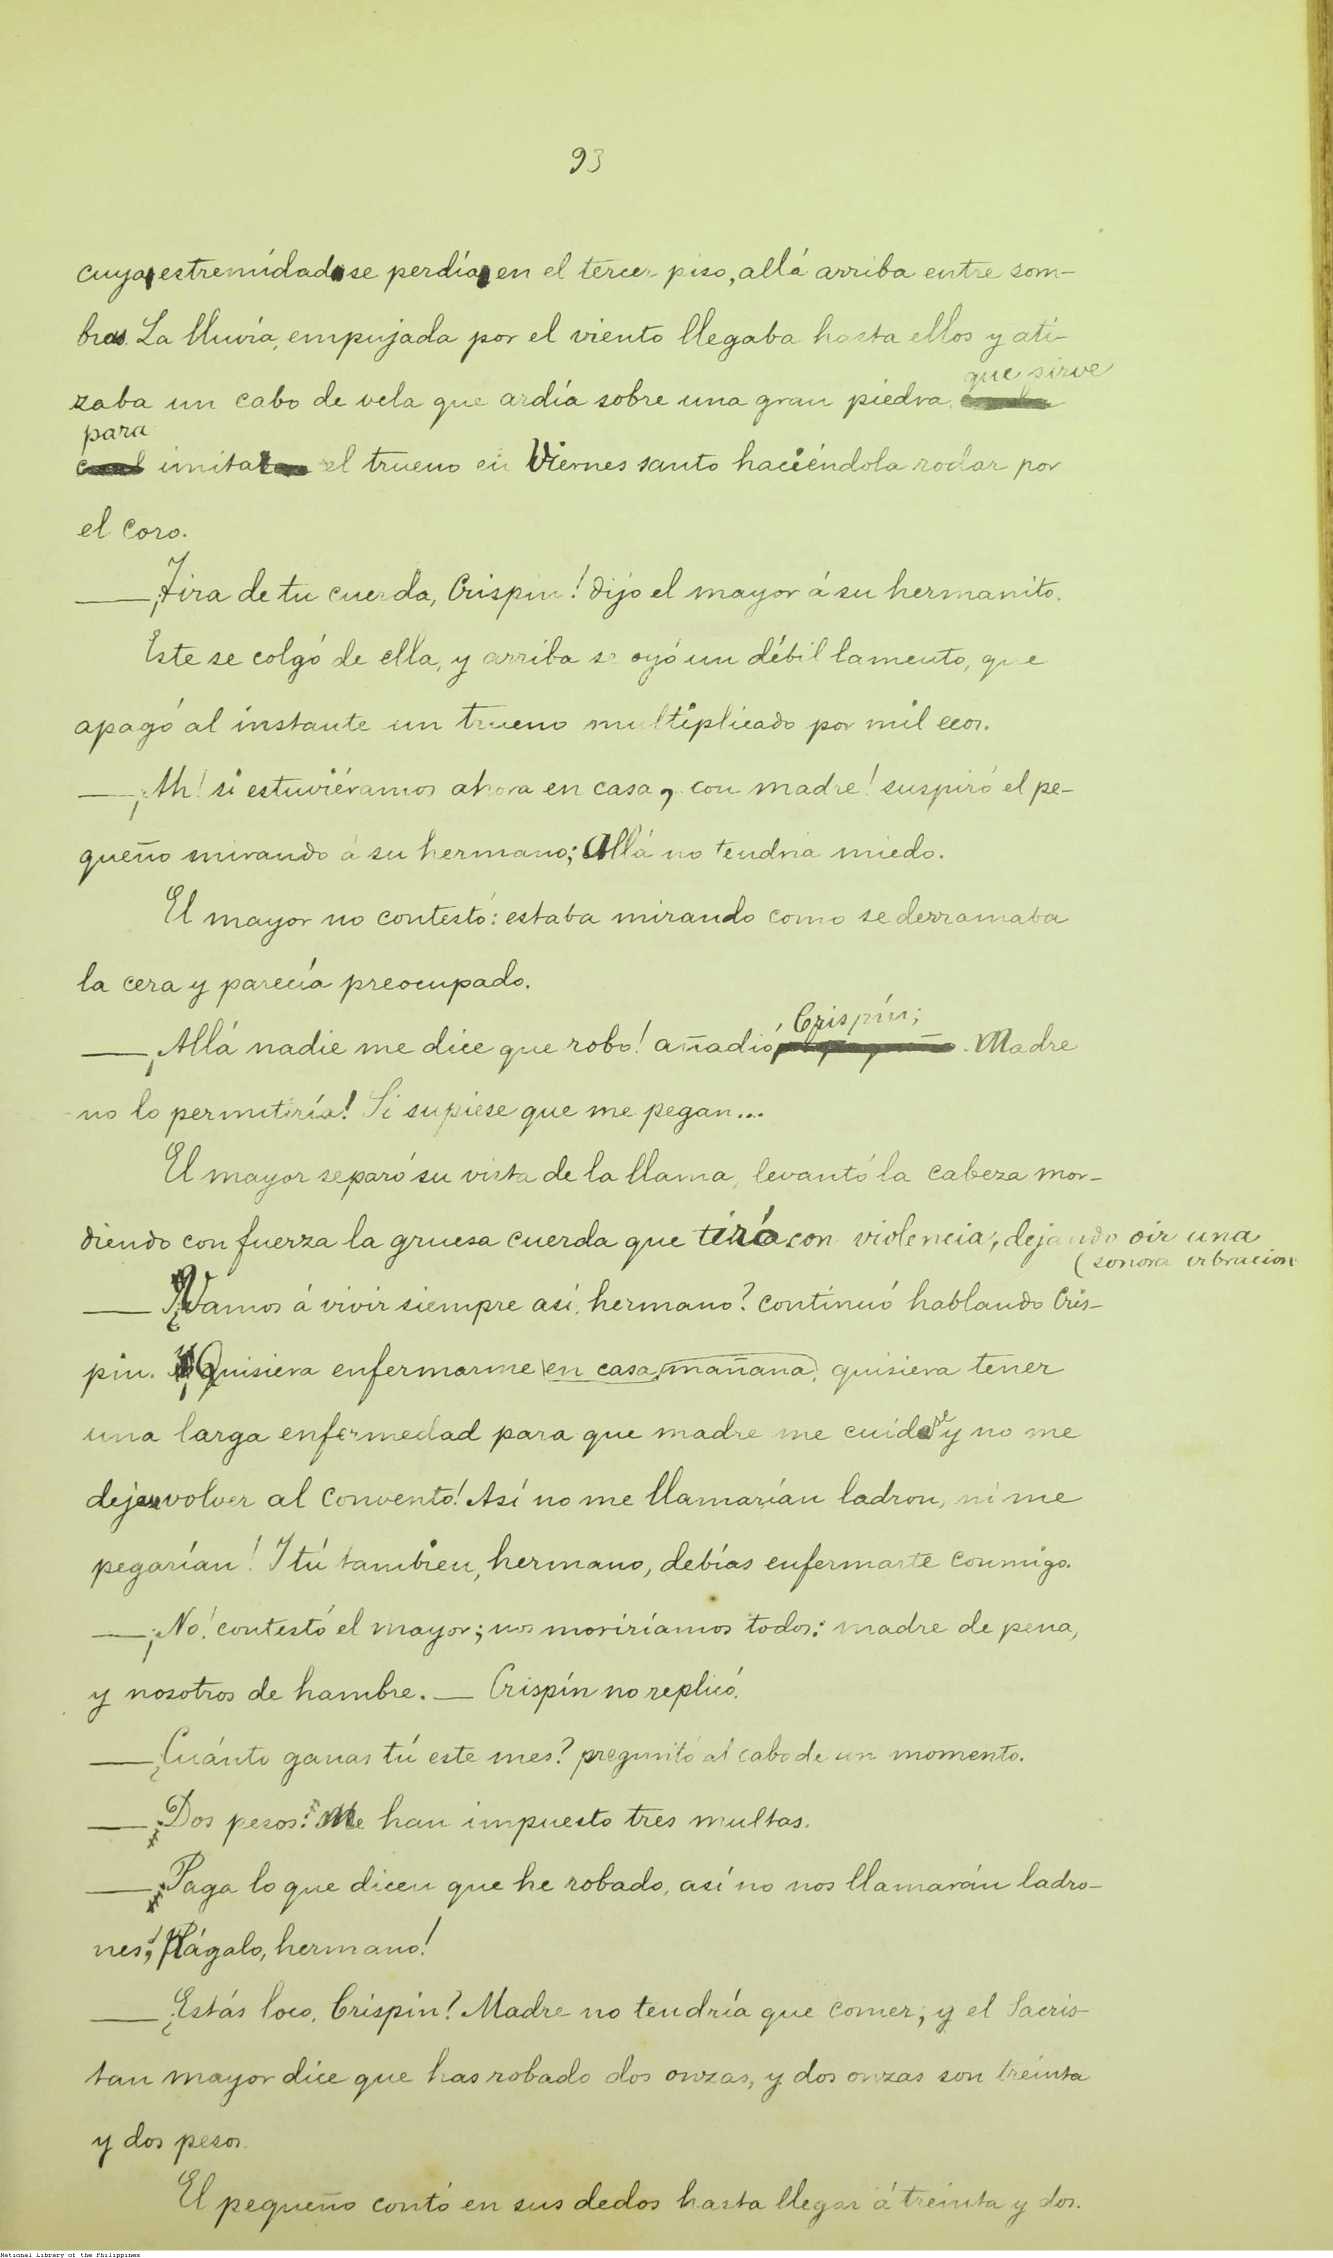 93
cuya estremidad se perdía en el tercer piso, allá arriba entre som-
bras. La lluvia, empujada por el viento llegaba hasta ellos y ati-
zaba un cabo de vela que ardía sobre una gran piedra, que sirve
para imitar el trueno en Viernes santo haciéndola rodar por
el coro.
— ¡Tira de tu cuerda, Crispin! dijo el mayor á su hermanito.
Este se colgó de ella, y arriba se oyó un débil lamento, que
apagó al instante un trueno multiplicado por mil ecos.
— ¡Ah! si estuviéramos ahora en casa, con madre! suspiró el pe-
queño mirando á su hermano; Allá no tendría miedo.
El mayor no contestó: estaba mirando como se derramaba
la cera y parecía preocupado.
— ¡Allá nadie me dice que robo! añadió Crispín; Madre
no lo permitiría! Si supiese que me pegan...
El mayor separó su vista de la llama, levantó la cabeza mor-
diendo con fuerza la gruesa cuerda que tiró con violencia, dejando oir una
(sonora vibracion
— ¿Vamos á vivir siempre así, hermano? continuó hablando Cris-
pin. ¡Quisiera enfermarme en casa mañana, quisiera tener
una larga enfermedad para que madre me cuide y no me
deje volver al convento! Así no me llamarían ladron, ni me
pegarían! I tú tambien, hermano, debías enfermarte conmigo.
— ¡No! contestó el mayor; nos moriríamos todos: madre de pena,
y nosotros de hambre. — Crispín no replicó.
— ¿Cuánto ganas tú este mes? preguntó al cabo de un momento.
— Dos pesos: Me han impuesto tres multas.
— Paga lo que dicen que he robado, así no nos llamarán ladro-
nes; Págalo, hermano!
— ¿Estás loco, Crispín? Madre no tendría que comer; y el Sacris-
tan mayor dice que has robado dos onzas, y dos onzas son treinta
y dos pesos.
El pequeño contó en sus dedos hasta llegar á treinta y dos.
National Library of the Philippines